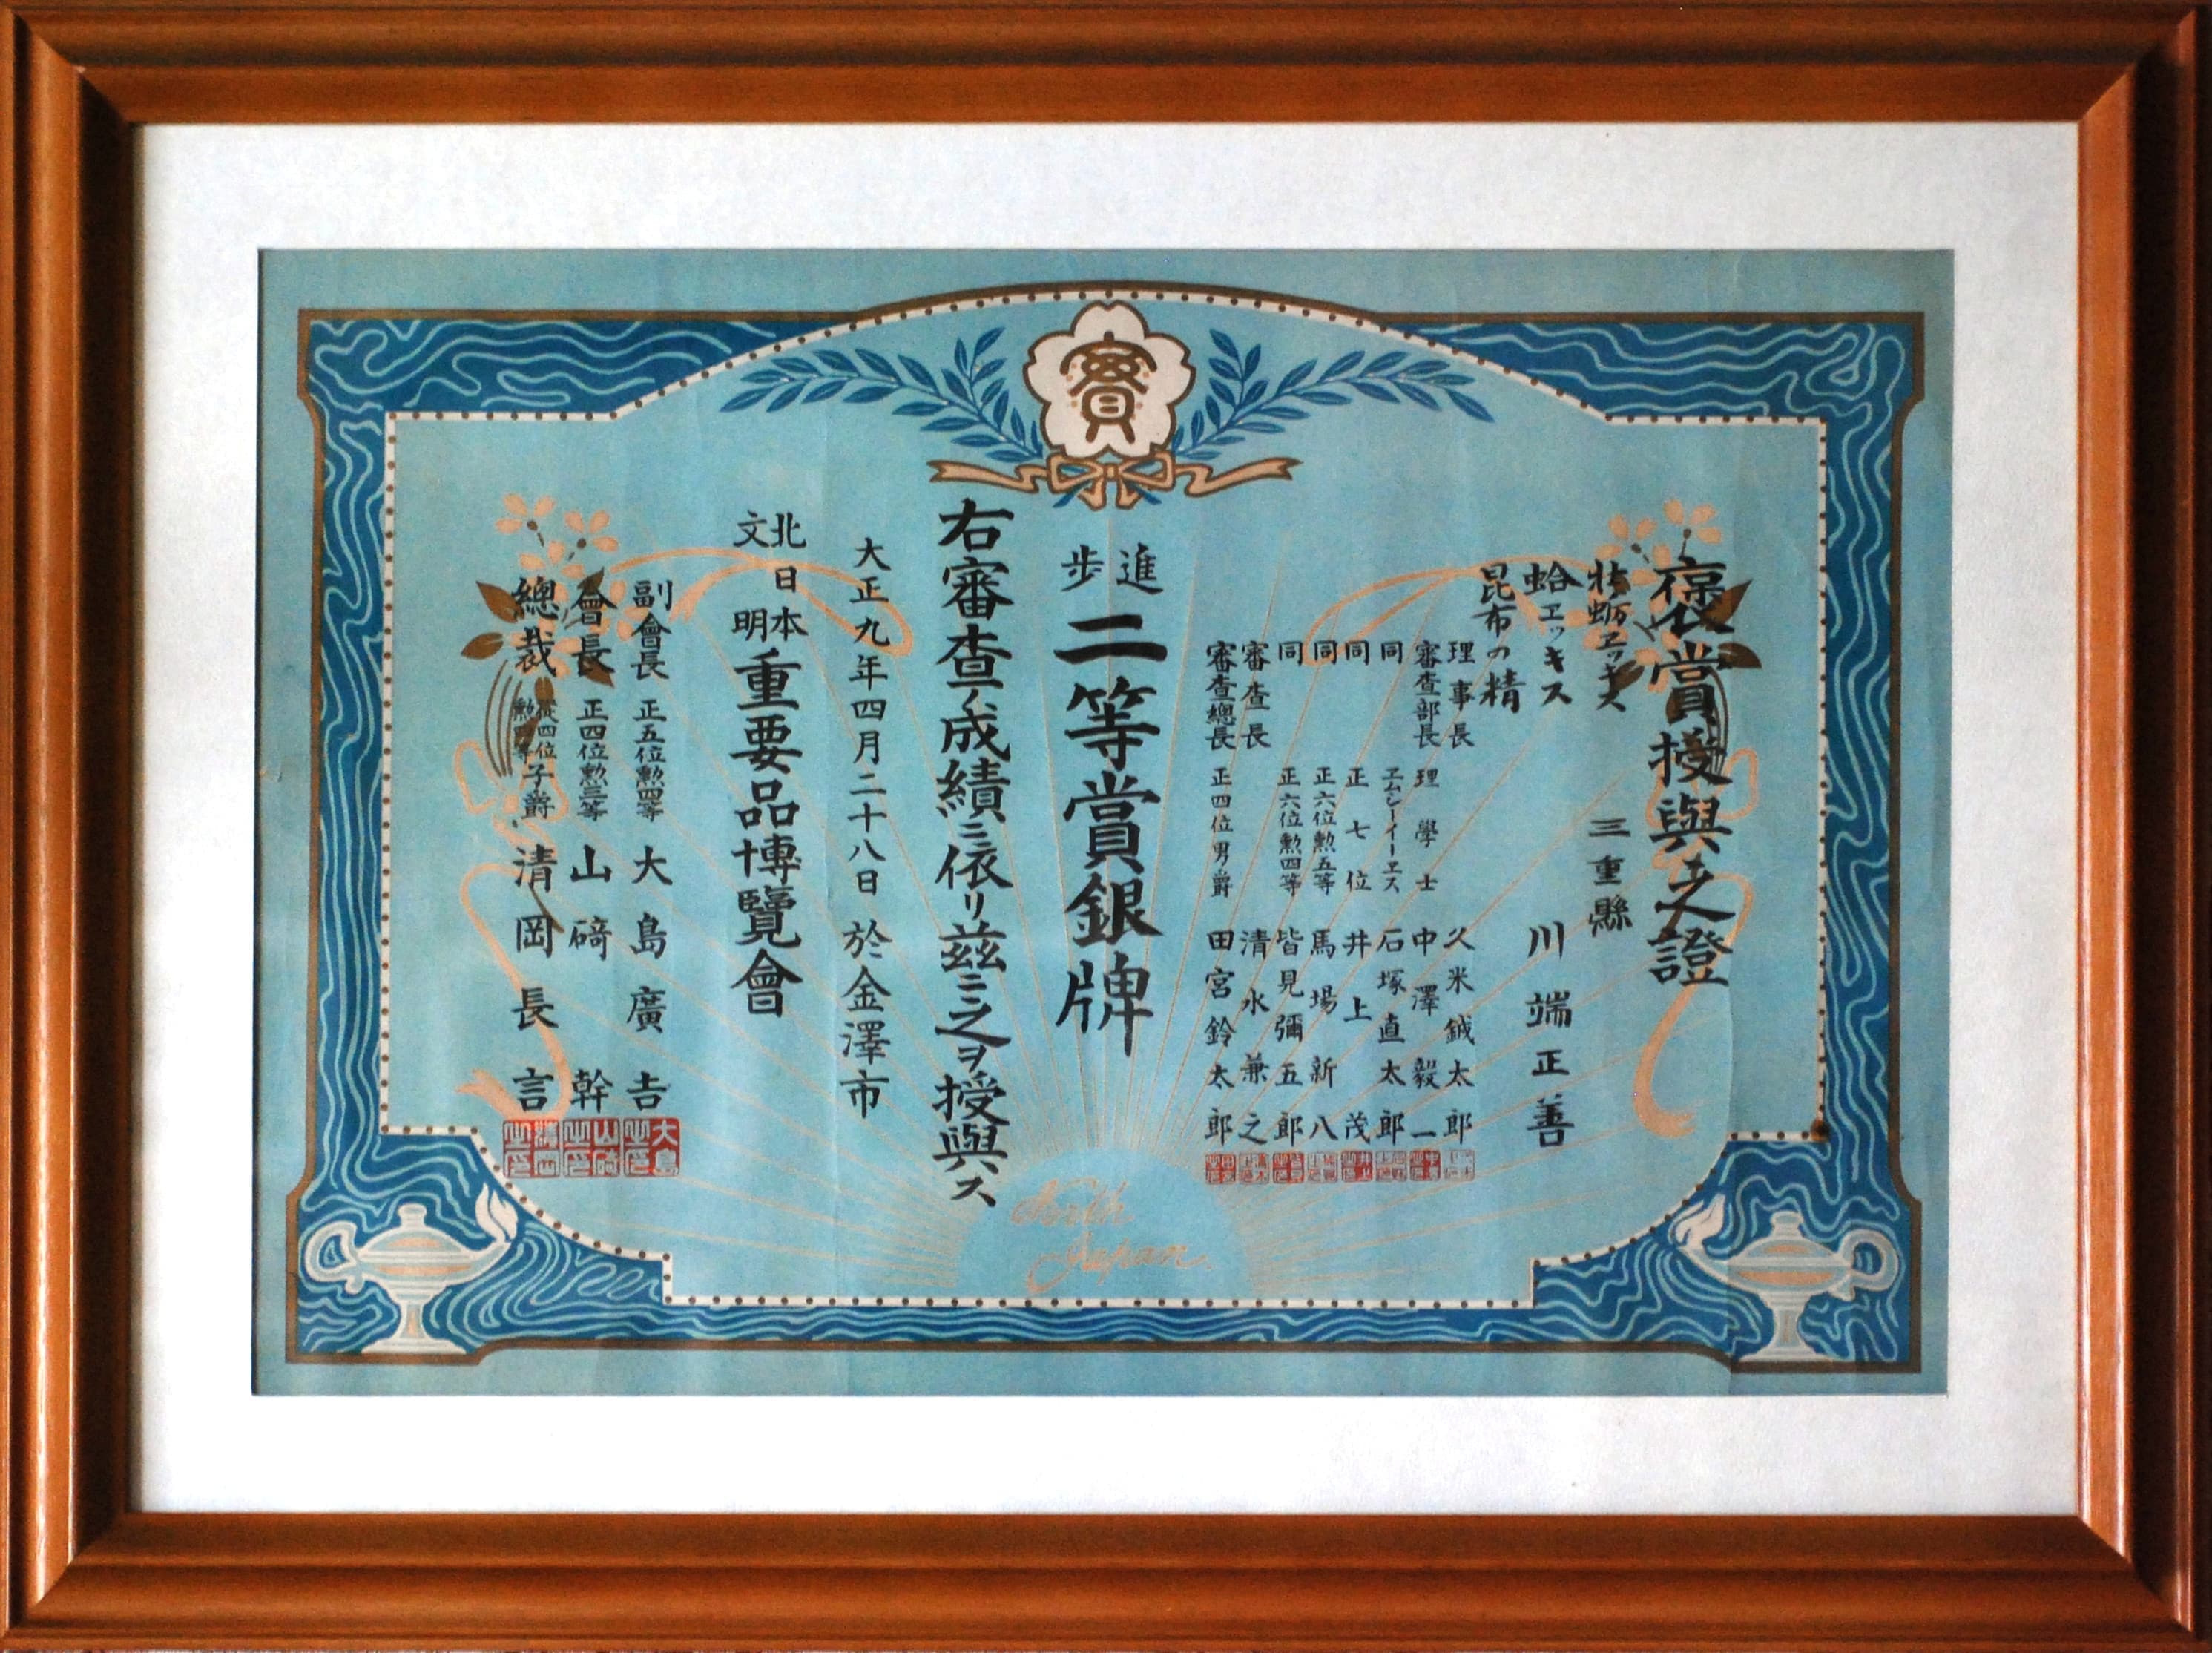 賞
褒賞授與之證
牡蛎エッキス
三重縣
蛤エッキス
川端正善
昆布の精
理事長 久米鉞太郎
審査部長 理學士 中澤毅一
同 エムシーイーエス 石塚直太郎
同 正七位 井上茂
同 正六位勲五等 馬場新八
同 正六位勲四等 皆見彌五郎
審査長 清水兼之
審査總長 正四位男爵 田宮鈴太郎
進歩 二等賞銀牌
右審査ノ成績ニ依リ茲ニ之ヲ授與ス
大正九年四月二十八日 於金澤市
北日本文明重要品博覽會
副會長 正五位勲四等 大島廣吉
會長 正四位勲三等 山﨑幹
總裁 從四位勲四等子爵 清岡長言
North
Japan.